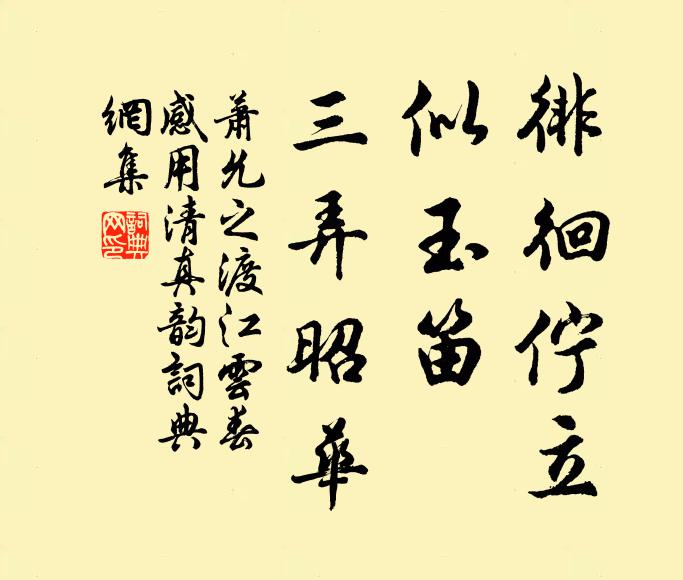 徘徊佇立
似玉笛
三弄昭華
蕭允之渡江雲春
感用清真韵詞典
網集
詞典网印